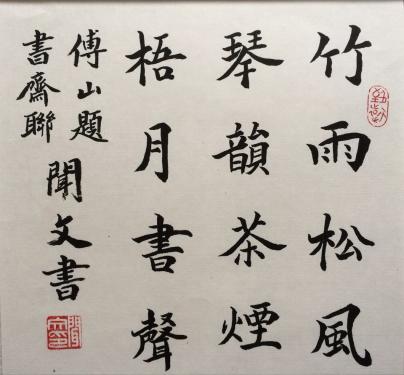 竹雨松風
琴韻茶煙
梧月書聲
傅山題
書齋聯
聞文書